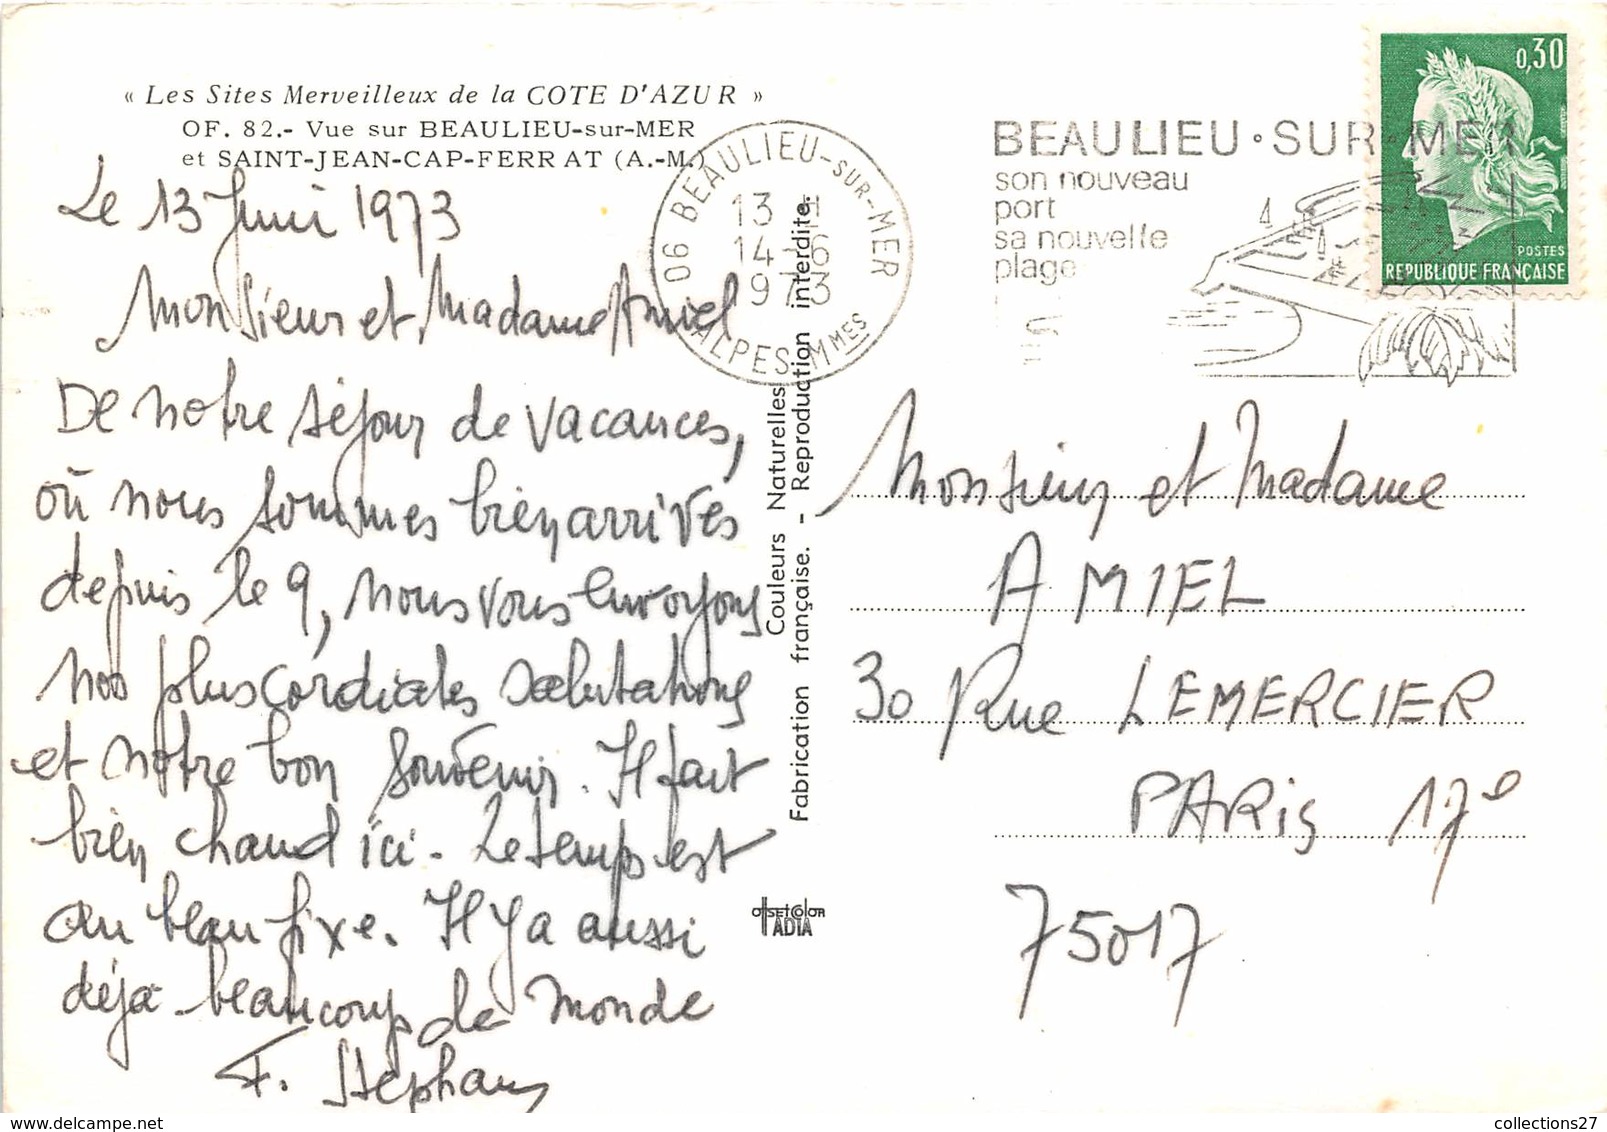 « Les Sites Merveilleux de la COTE D'AZUR »
OF. 82.- Vue sur BEAULIEU-sur-MER
et SAINT-JEAN-CAP-FERRAT (A.-M.)
Le 13 Juin 1973
Monsieur et Madame Amiel
De notre séjour de vacances,
où nous sommes bien arrivés
depuis le 9, nous vous envoyons
nos plus cordiales salutations
et notre bon souvenir. Il fait
bien chaud ici. Le temps est
au beau fixe. Il y a aussi
déjà beaucoup de monde
F. Stephany
06 BEAULIEU-SUR-MER
13 H
14-6
1973
ALPES-MMES
Couleurs Naturelles
Fabrication française. - Reproduction interdite.
OFFSET COLOR
TADIA
BEAULIEU·SUR·MER
son nouveau
port
sa nouvelle
plage
0,30
POSTES
REPUBLIQUE FRANÇAISE
Monsieur et Madame
AMIEL
30 Rue LEMERCIER
PARIS 17e
75017
www.delcampe.net
collections27